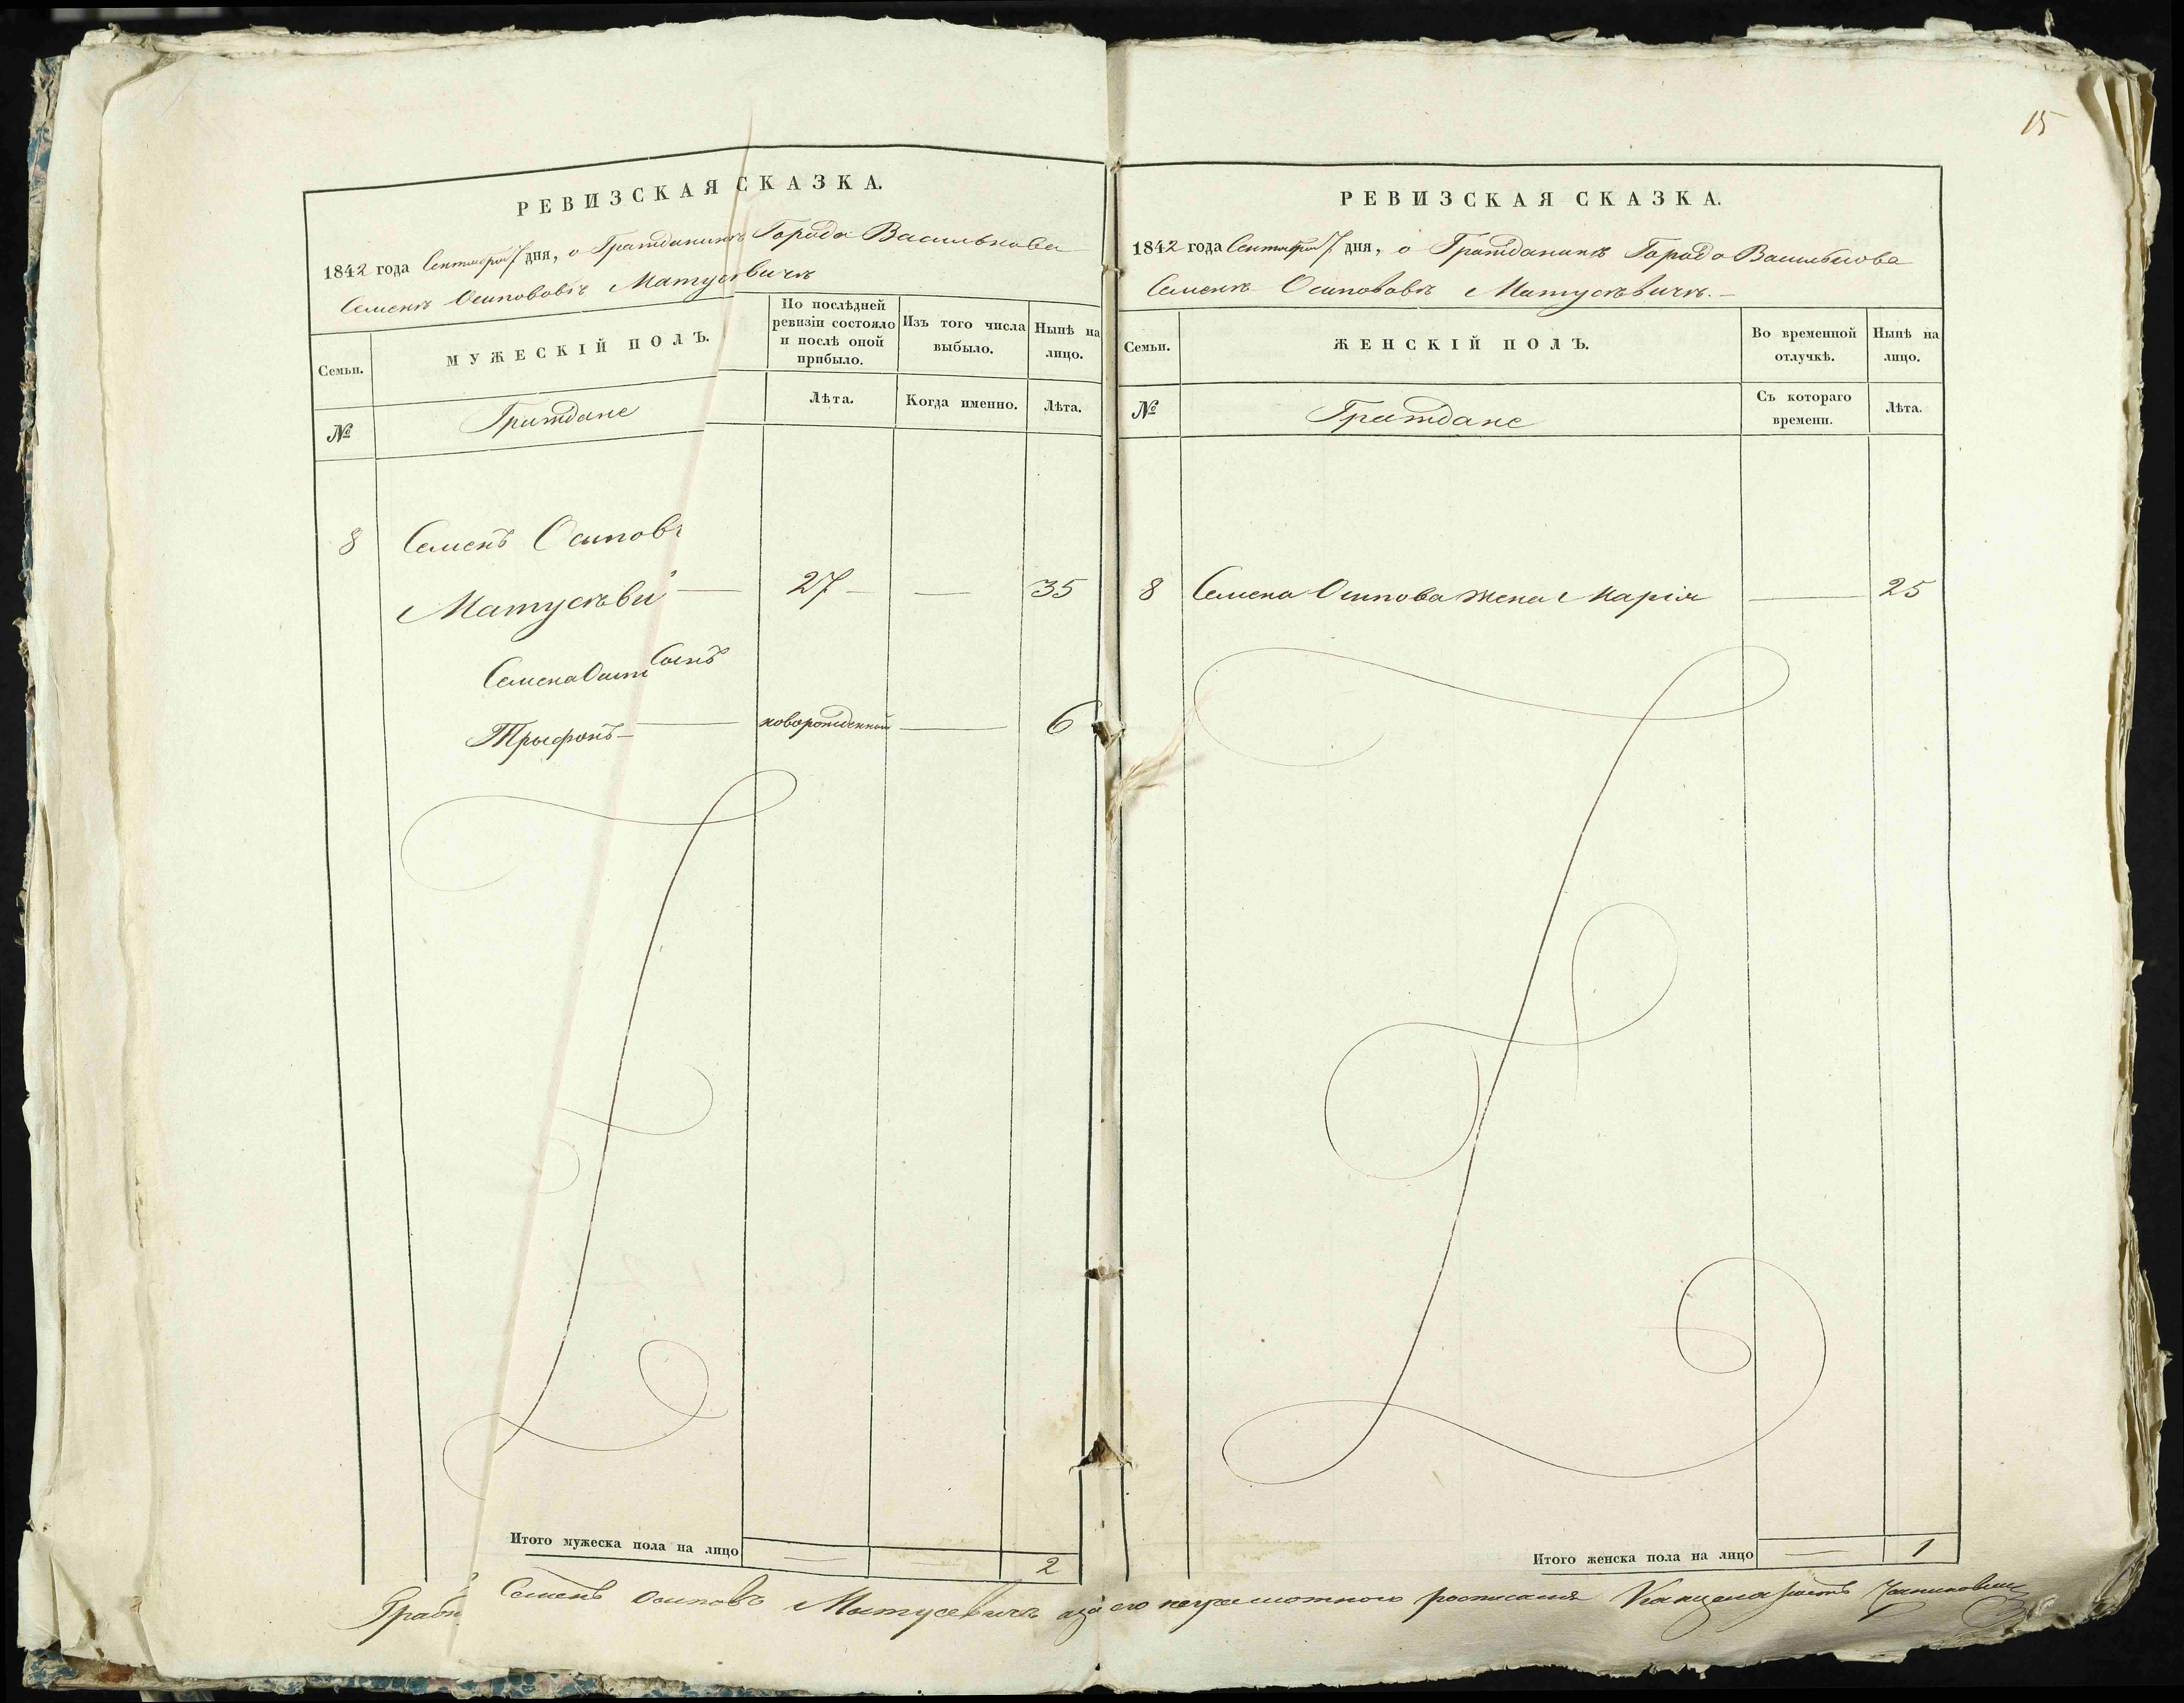 15
РЕВИЗСКАЯ СКАЗКА.
1842 года Сентября 7 дня, о Гражданинѣ Города Василькова
Семенѣ Осиповѣ Матусѣвичѣ
Семьи.
МУЖЕСКІЙ ПОЛЪ.
По послѣдней ревизіи состояло и послѣ оной прибыло.
Изъ того числа выбыло.
Нынѣ на лицо.
№
Граждане
Лѣта.
Когда именно.
Лѣта.
8 Семенъ Осиповъ
Матусѣви — 27 — — 35
Семена Осип Сынъ
Трифонъ — новорожденный — 6
Итого мужеска пола на лицо — — 2
РЕВИЗСКАЯ СКАЗКА.
1842 года Сентября 7 дня, о Гражданинѣ Города Василькова
Семенѣ Осиповѣ Матусѣвичѣ. —
Семьи.
ЖЕНСКІЙ ПОЛЪ.
Во временной отлучкѣ.
Нынѣ на лицо.
№
Граждане
Съ котораго времени.
Лѣта.
8 Семена Осипова жена Марія — 25
Итого женска пола на лицо — 1
Семенъ Осиповъ Матусевичъ а за его неграмотного росписался